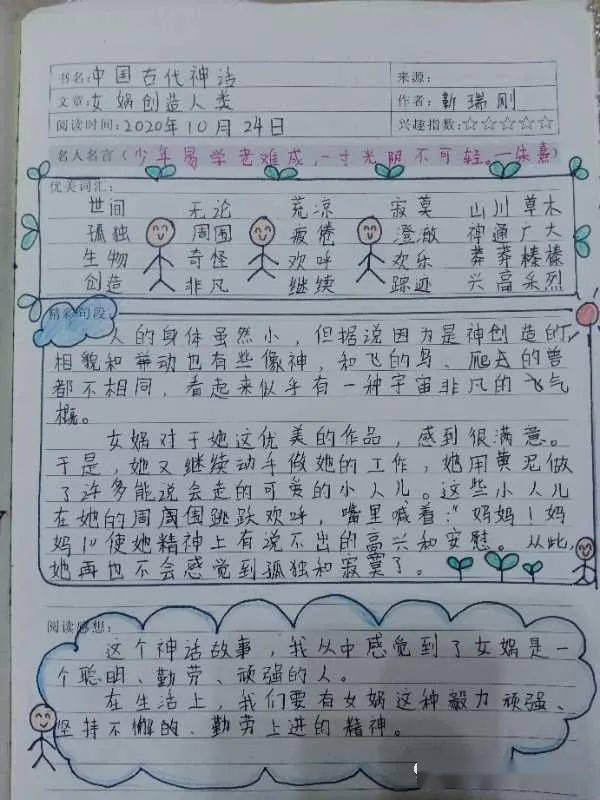 书名:中国古代神话 来源:
文章:女娲创造人类 作者:靳瑞刚
阅读时间:2020年10月24日 兴趣指数:☆☆☆☆☆
名人名言(少年易学老难成,一寸光阴不可轻。—朱熹)
优美词汇:
世间 无论 荒凉 寂莫 山川草木
孤独 周围 疲倦 澄澈 神通广大
生物 奇怪 欢呼 欢乐 莽莽榛榛
创造 非凡 继续 踪迹 兴高采烈
精彩句段:
人的身体虽然小,但据说因为是神创造的,
相貌和举动也有些像神,和飞的鸟、爬去的兽
都不相同,看起来似乎有一种宇宙非凡的飞气
概。
女娲对于她这优美的作品,感到很满意。
于是,她又继续动手做她的工作,她用黄泥做
了许多能说会走的可爱的小人儿。这些小人儿
在她的周围跳跃欢呼,嘴里喊着:"妈妈!妈
妈!"使她精神上有说不出的高兴和安慰。从此,
她再也不会感觉到孤独和寂寞了。
阅读感想:
这个神话故事,我从中感觉到了女娲是一
个聪明、勤劳、顽强的人。
在生活上,我们要有女娲这种毅力顽强、
坚持不懈的、勤劳上进的精神。